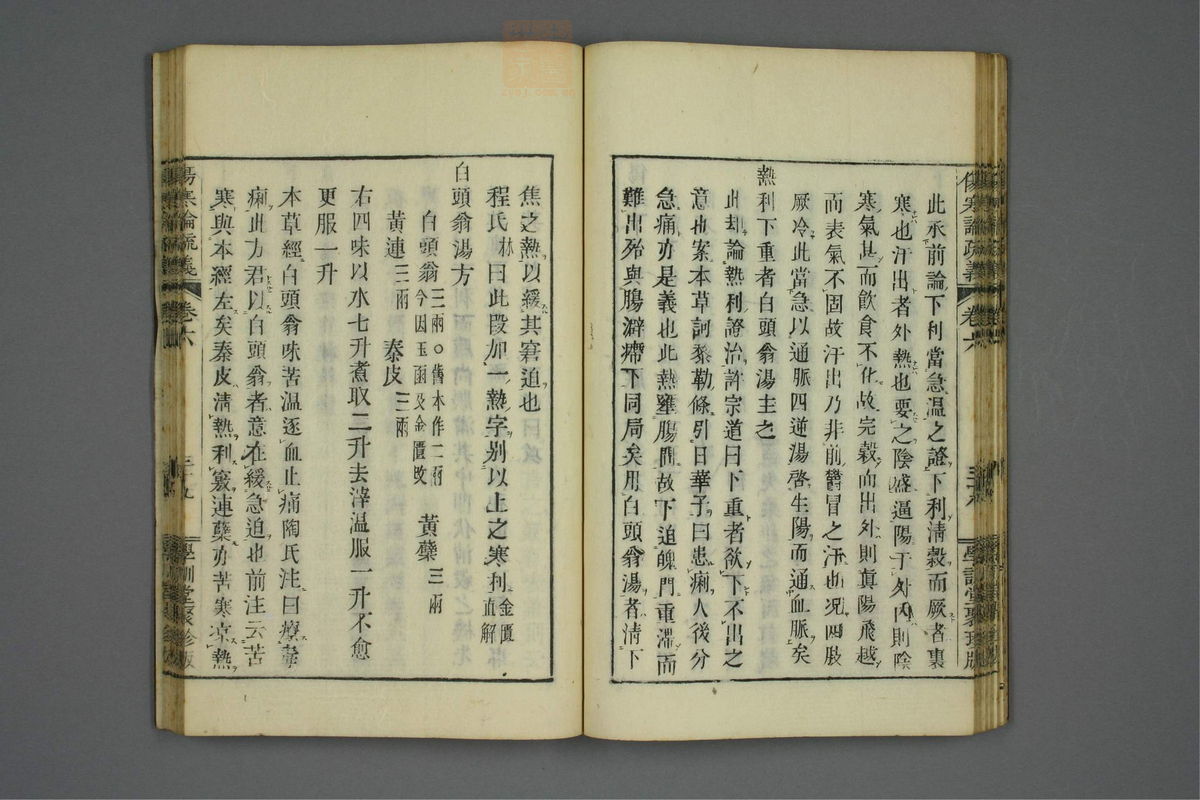 傷寒論疏義 卷六 三十八 學訓堂聚珍版
此承前論下利當急温之證下利清穀而厥者裏
寒也汗出者外熱也要之陰盛逼陽于外内則陰
寒氣甚而飮食不化故完穀而出外則眞陽飛越
而表氣不固故汗出乃非前欝冒之汗也况四肢
厥冷此當急以通脈四逆湯啓生陽而通血脈矣
熱利下重者白頭翁湯主之
此却論熱利證治許宗道曰下重者欲下不出之
意也案本草訶黎勒條引日華子曰患痢人後分
急痛亦是義也此熱壅腸間故下迫魄門重滯而
難出殆與腸澼滯下同局矣用白頭翁湯者淸下
焦之熱以緩其窘迫也
程氏林曰此段加一熱字別以上之寒利金匱直解
白頭翁湯方
白頭翁三兩○舊本作二兩今因玉函及金匱改 黃蘗三兩
黃連三兩 秦皮三兩
右四味以水七升煮取二升去滓温服一升不愈
更服一升
本草經白頭翁味苦温逐血止痛陶氏注曰療毒
痢此方君以白頭翁者意在緩急迫也前注云苦
寒與本經左矣秦皮淸熱利竅連蘗亦苦寒凉熱
傷寒論疏義 卷六 三十九 學訓堂聚珍版